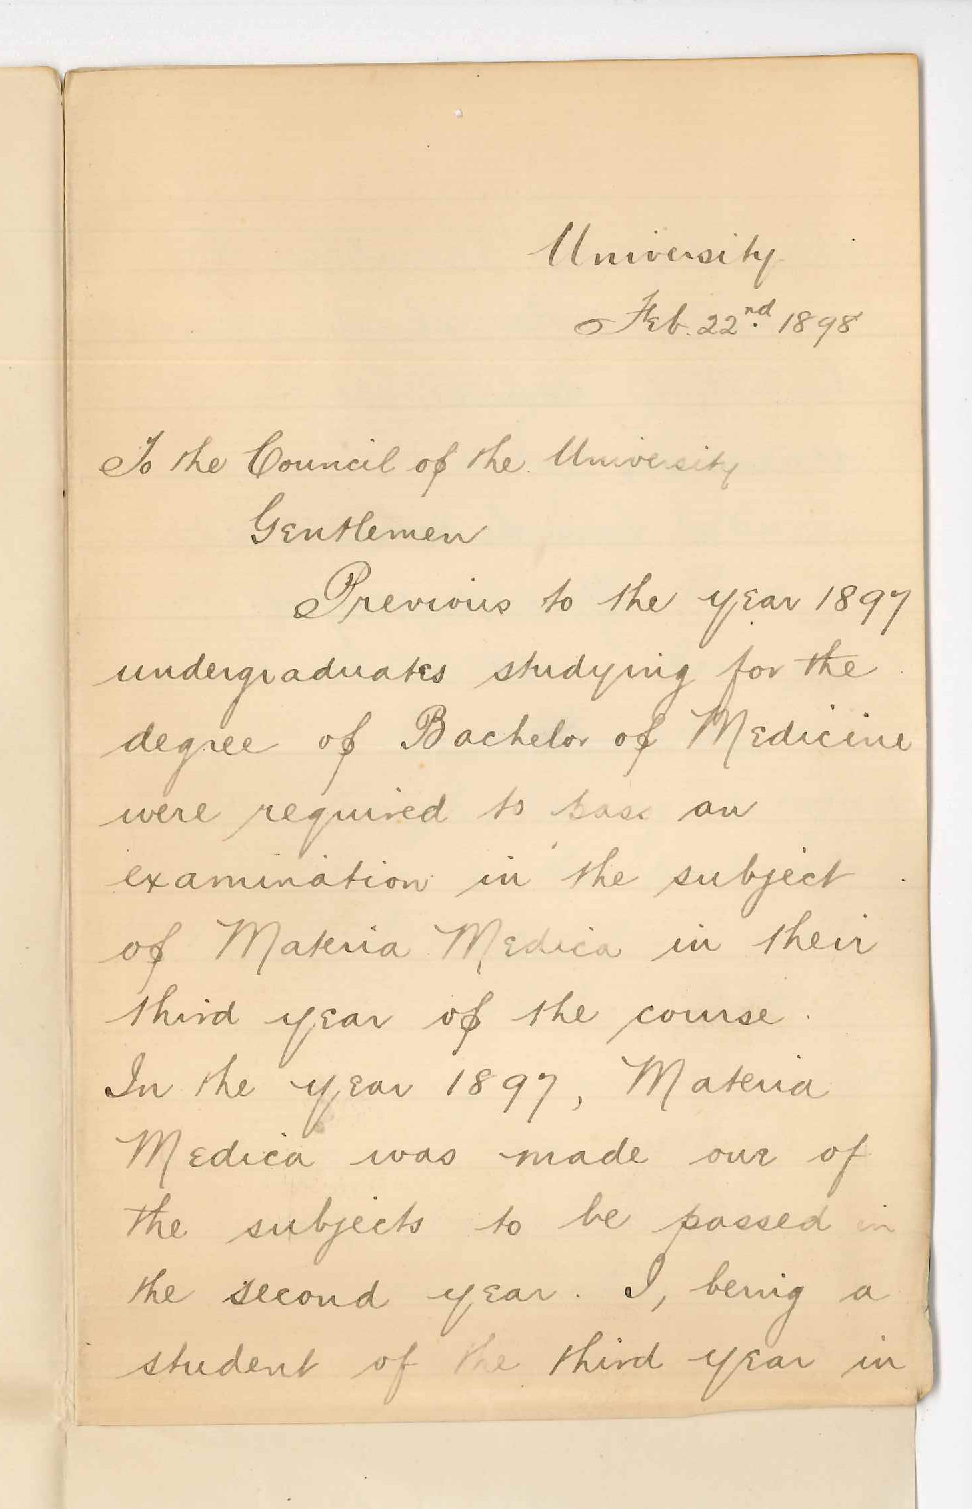 University
Feb. 22nd. 1898
To the Council of the University
Gentlemen
Previous to the year 1897
undergraduates studying for the
degree of Bachelor of Medicine
were required to pass an
examination in the subject
of Materia Medica in their
third year of the course.
In the year 1897, Materia
Medica was made one of
the subjects to be passed in
the second year. I, being a
student of the third year in